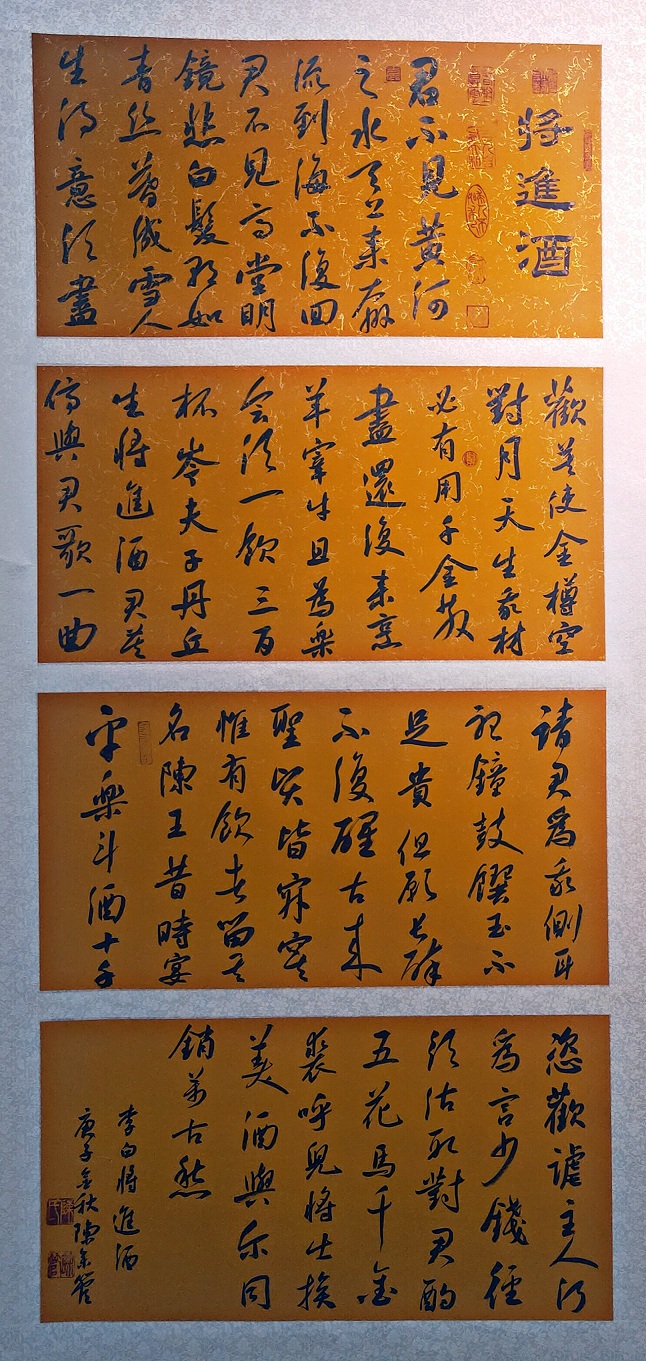 將進酒
君不見黃河
之水天上来奔
流到海不復回
君不見高堂明
鏡悲白髮朝如
青丝暮成雪人
生得意须盡
歡莫使金樽空
對月天生我材
必有用千金散
盡還復来烹
羊宰牛且為樂
会须一飲三百
杯岑夫子丹丘
生將進酒君莫
停與君歌一曲
請君為我側耳
聽鐘鼓饌玉不
足貴但願长醉
不復醒古来
聖賢皆寂寞
惟有飲者留其
名陳王昔時宴
平樂斗酒十千
恣歡謔主人何
為言少錢徑
须沽取對君酌
五花馬千金
裘呼兒將出換
美酒與尔同
銷萬古愁
李白將進酒
庚子金秋陳